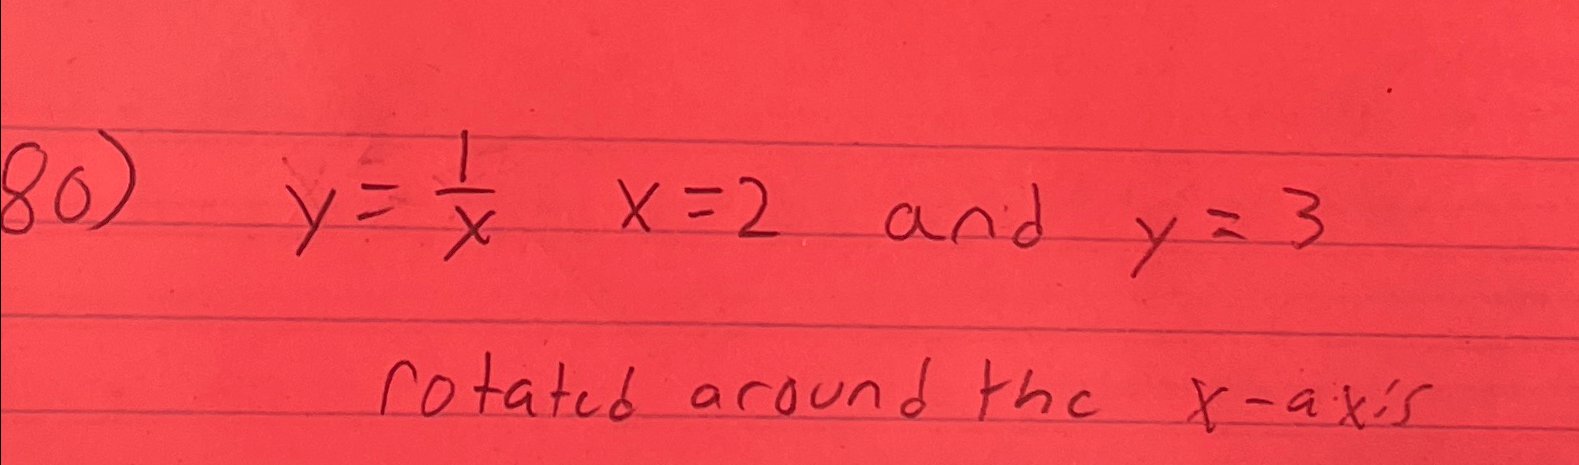 80) y = 1/x x = 2 and y = 3
rotated around the x-axis